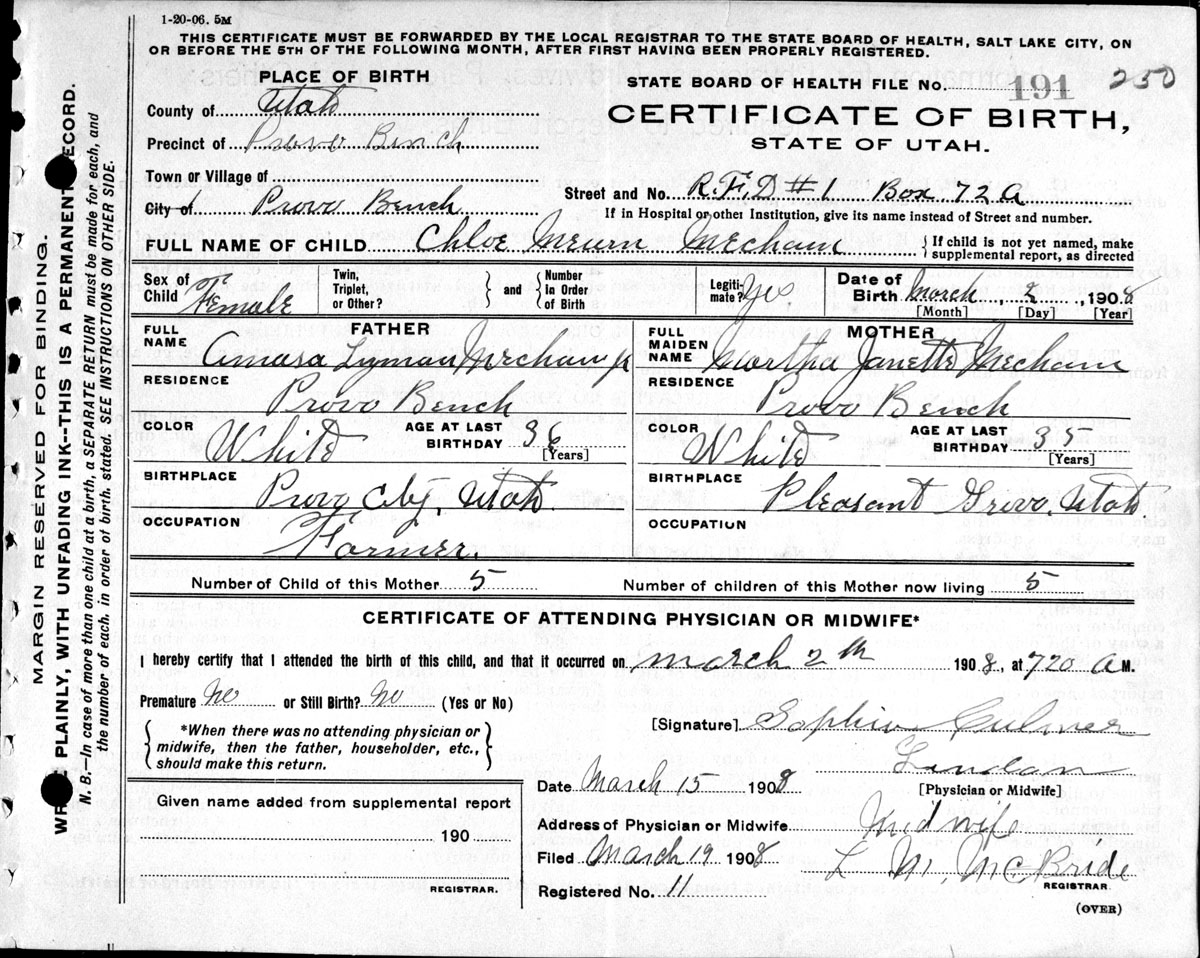 1-20-06. 5M
THIS CERTIFICATE MUST BE FORWARDED BY THE LOCAL REGISTRAR TO THE STATE BOARD OF HEALTH, SALT LAKE CITY, ON
OR BEFORE THE 5TH OF THE FOLLOWING MONTH, AFTER FIRST HAVING BEEN PROPERLY REGISTERED.
PLACE OF BIRTH
County of Utah
Precinct of Provo Bench
Town or Village of
City of Provo Bench
STATE BOARD OF HEALTH FILE No. 191 250
CERTIFICATE OF BIRTH,
STATE OF UTAH.
Street and No. R.F.D #1 Box 72 A
If in Hospital or other Institution, give its name instead of Street and number.
FULL NAME OF CHILD Chloe Meurn Mecham { If child is not yet named, make
supplemental report, as directed
Sex of Child Female
Twin, Triplet, or Other? } and { Number In Order of Birth
Legiti-mate? Yes
Date of Birth March 2, 1908
[Month] [Day] [Year]
FATHER
FULL NAME Amasa Lyman Mecham jr
RESIDENCE
Provo Bench
COLOR White AGE AT LAST BIRTHDAY 36 [Years]
BIRTHPLACE
Provo City, Utah
OCCUPATION
Farmer.
MOTHER
FULL MAIDEN NAME Martha Janette Mecham
RESIDENCE
Provo Bench
COLOR White AGE AT LAST BIRTHDAY 35 [Years]
BIRTHPLACE
Pleasant Grove Utah
OCCUPATION
Number of Child of this Mother 5 Number of children of this Mother now living 5
CERTIFICATE OF ATTENDING PHYSICIAN OR MIDWIFE*
I hereby certify that I attended the birth of this child, and that it occurred on March 2th 1908, at 720 A M.
Premature No or Still Birth? No (Yes or No)
{ *When there was no attending physician or
midwife, then the father, householder, etc.,
should make this return. }
[Signature] Sophia Culmer
[Physician or Midwife]
Date March 15 1908
Address of Physician or Midwife Midwife
Filed March 19 1908 L M, McBride
REGISTRAR
Registered No. 11
(OVER)
Given name added from supplemental report
190
REGISTRAR.
MARGIN RESERVED FOR BINDING.
PLAINLY, WITH UNFADING INK--THIS IS A PERMANENT RECORD.
N. B.—In case of more than one child at a birth, a SEPARATE RETURN must be made for each, and
the number of each, in order of birth, stated. SEE INSTRUCTIONS ON OTHER SIDE.